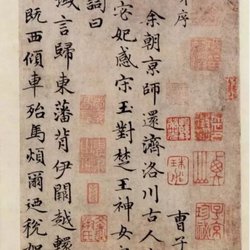 并序
曹子
余朝京師還濟洛川古人
宓妃感宋玉對楚王神女
詞曰
域言歸東藩背伊闕越轘
既西傾車殆馬煩爾迺稅駕